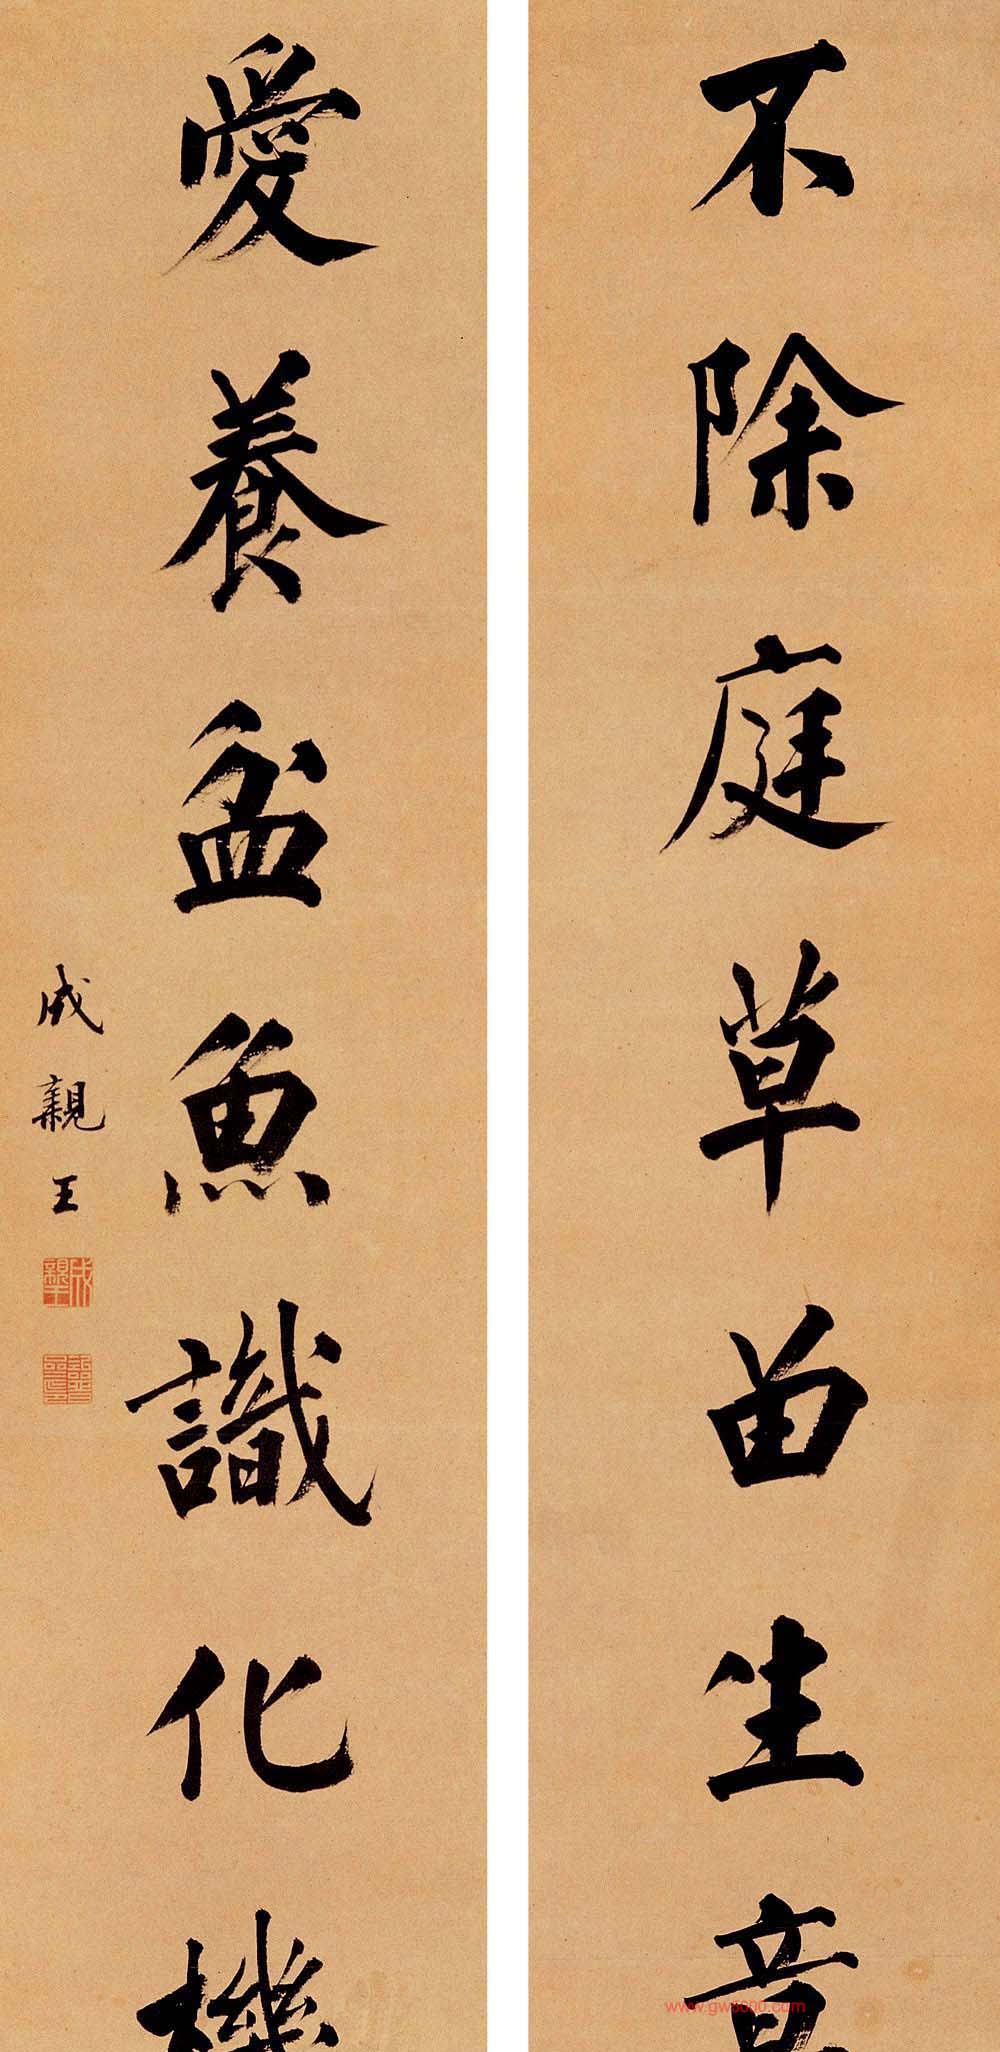 不除庭草留生意
愛養盆魚識化機
成親王
成親王
www.gw5000.com